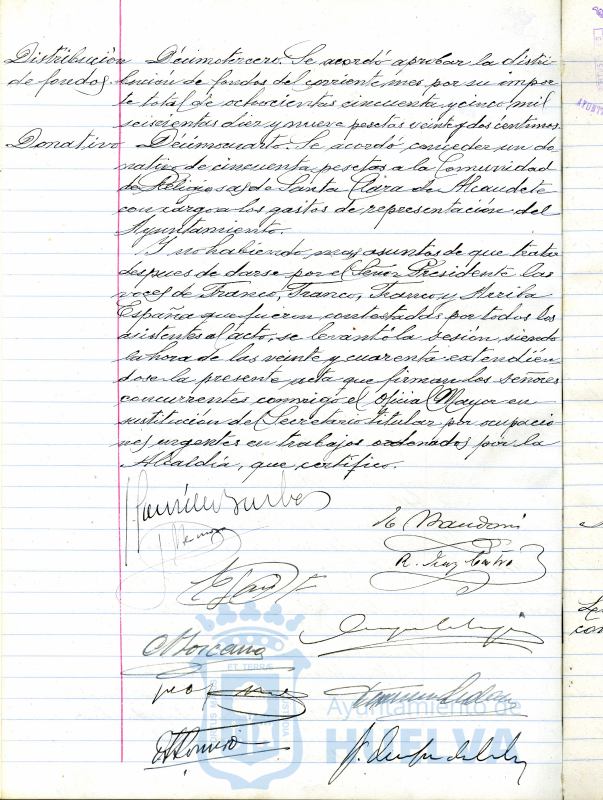 Distribución Décimotercero. Se acordó aprobar la distri-
de fondos. bución de fondos del corriente mes por su impor-
te total de ochocientas cincuenta y cinco mil
seiscientas diez y nueve pesetas veinte y dos centimos.
Donativo Décimocuarto. Se acordó conceder un do
nativo de cincuenta pesetas a la Comunidad
de Religiosas de Santa Clara de Alcaudete
con cargo a los gastos de representación del
Ayuntamiento.
Y no habiendo mas asuntos de que tratar
despues de darse por el Señor Presidente las
voces de Franco, Franco, Franco y Arriba
España que fueron contestadas por todos los
asistentes al acto, se levantó la sesión, siendo
la hora de las veinte y cuarenta extendién
dose la presente acta que firman los señores
concurrentes conmigo el Oficial Mayor en
sustitución del Secretario titular por ocupacio
nes urgentes en trabajos ordenados por la
Alcaldía, que certifico.
ET TERRÆ
Ayuntamiento de
HUELVA